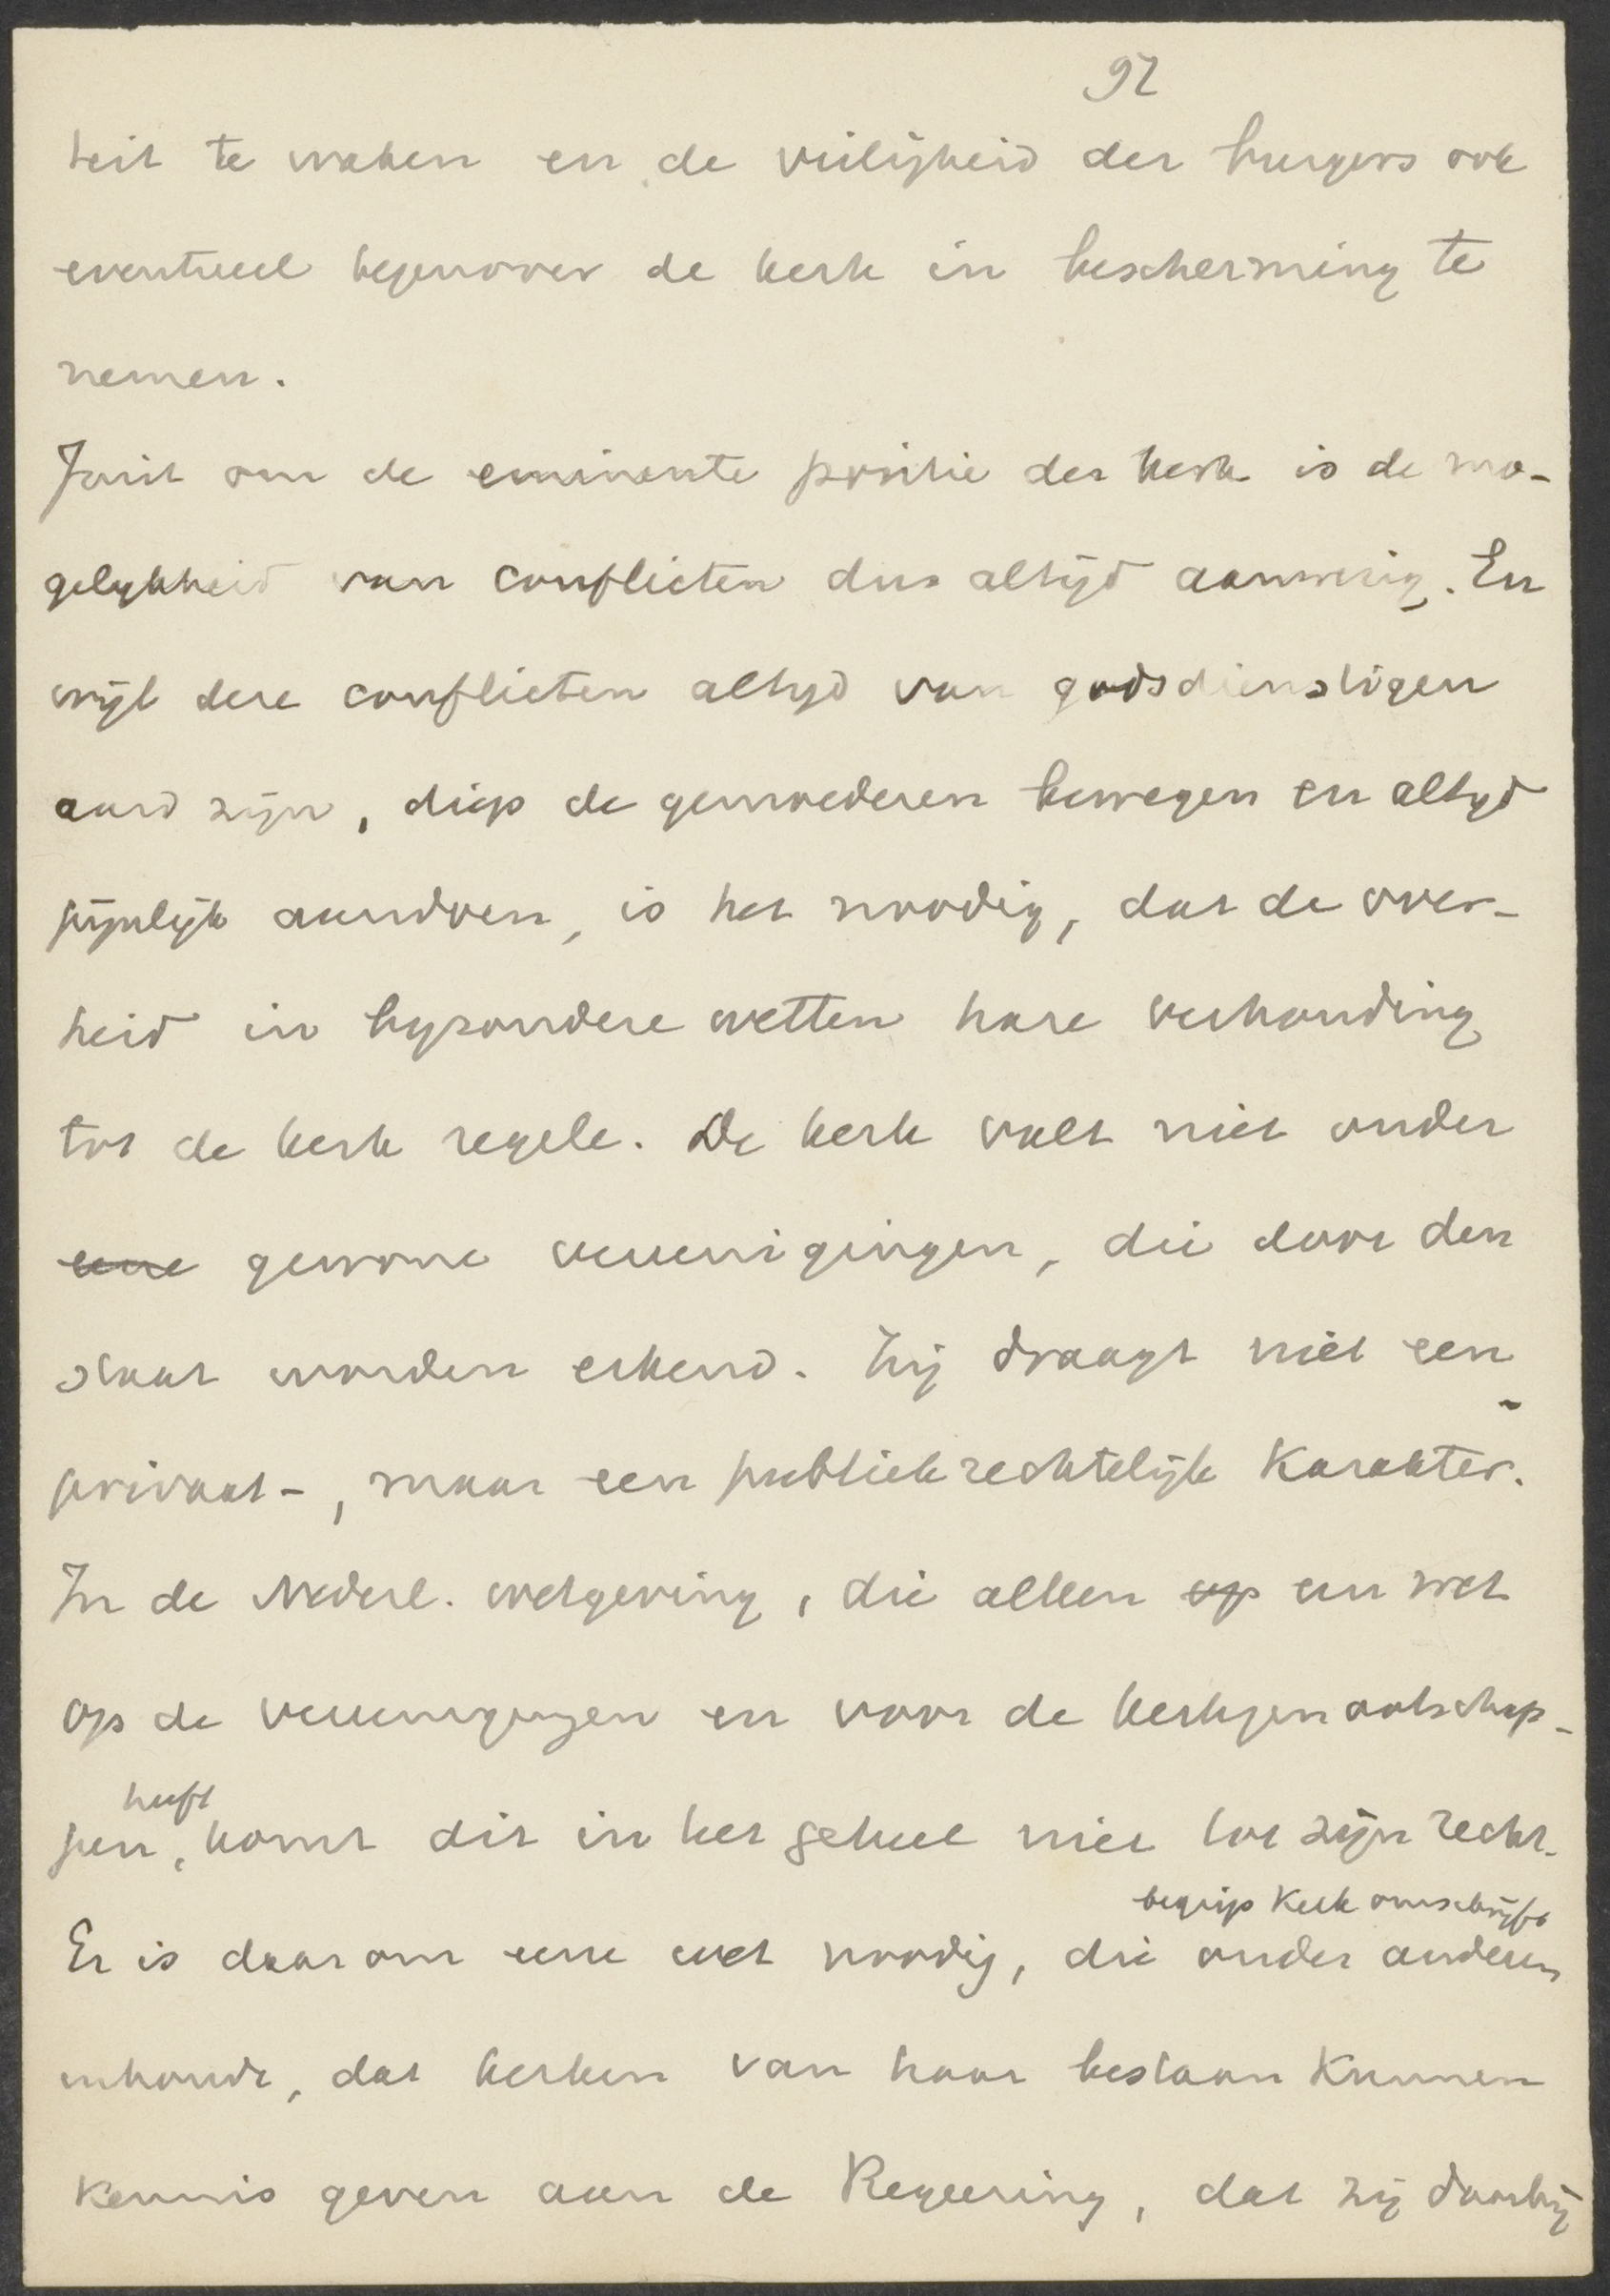 92
teit te waken en de veiligheid der burgers ook
eventueel tegenover de kerk in bescherming te
nemen.
Juist om de eminente positie der kerk is de mo-
gelykheid van conflicten dus altijd aanwezig. En
wijl deze conflicten altyd van godsdienstigen
aard zijn, diep de gemoederen bewegen en altyd
pijnlijk aandoen, is het noodig, dat de over-
heid in byzondere wetten hare verhouding
tot de kerk regele. De kerk valt niet onder
eene gewone vereenigingen, die door den
staat worden erkend. Zij draagt niet een
privaat-, maar een publiekrechtelijk karakter.
In de Nederl. wetgeving, die alleen op een wet
op de vereenigingen en voor de kerkgenootschap-
heeft
pen, komt dit in het geheel niet tot zijn recht.
begrip Kerk omschrijft
Er is daarom eene wet noodig, die onder anderen
inhoude, dat kerken van haar bestaan kunnen
kennis geven aan de Regeering, dat zij daarbij